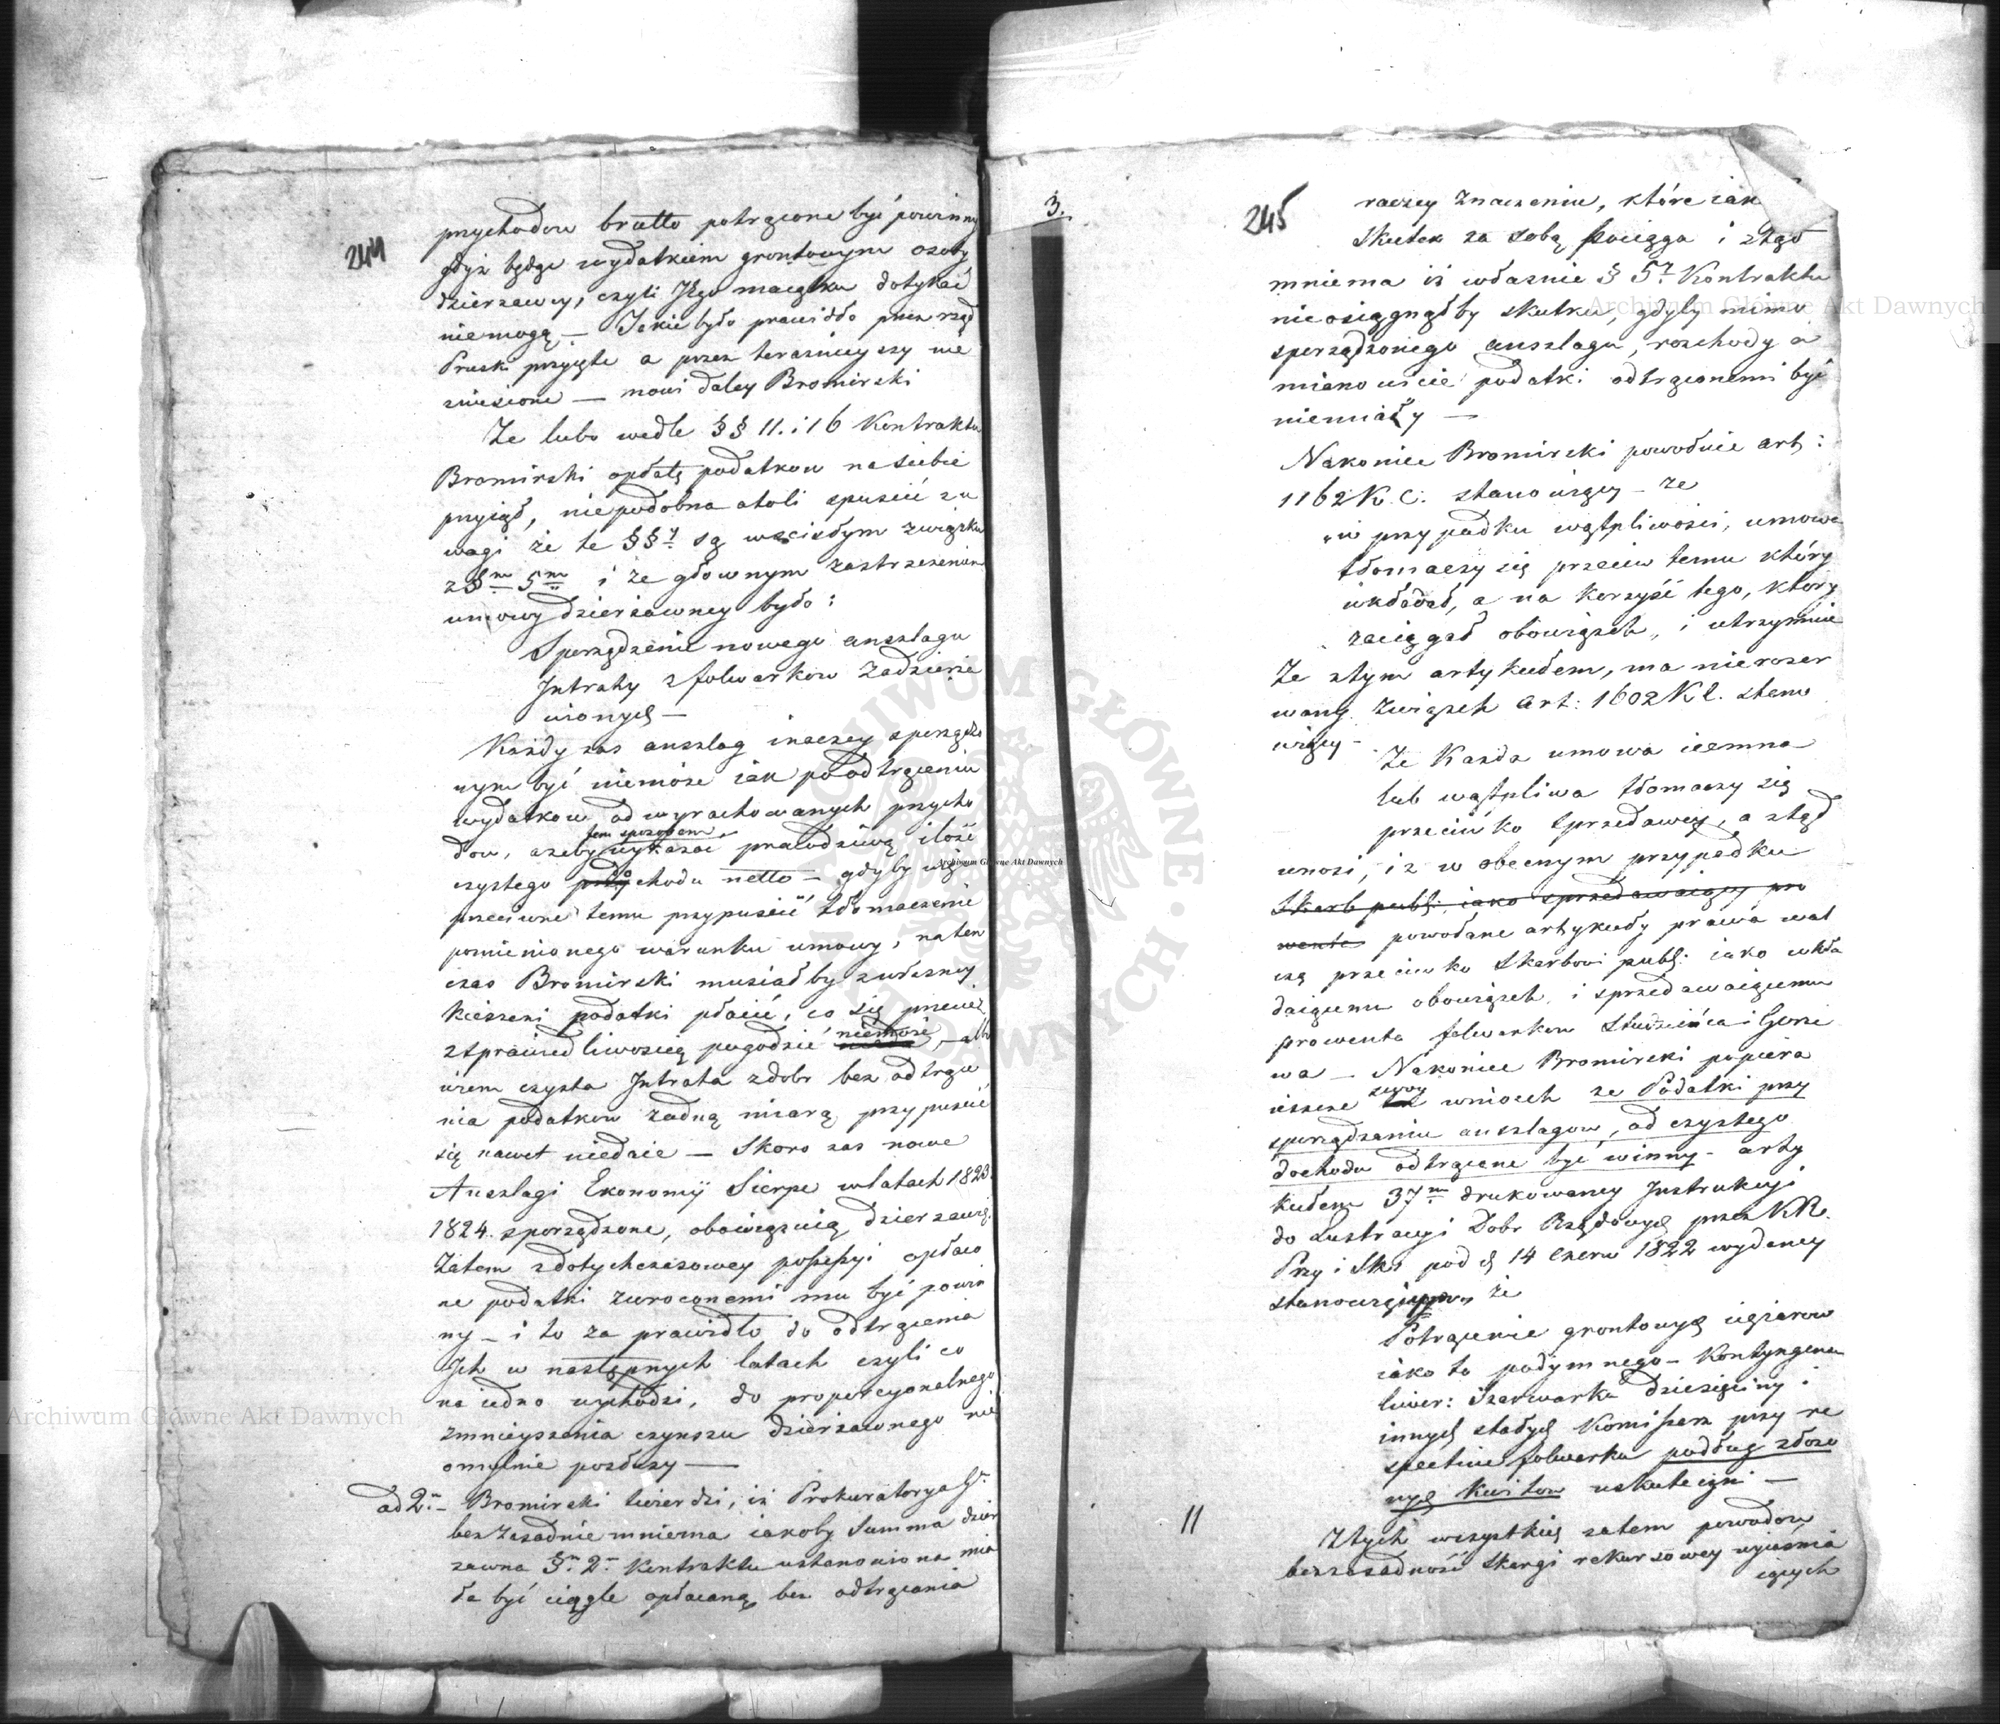 244
przychodow brutto potrącone być powinny
gdyż będąc wydatkiem grontowym osoby
dzierzawcy, czyli Jego maiątku dotykać
niemogą — Jakie było prawidło przez rząd
Pruski przyięte a przez teraznieyszy nie
zniesione — mowi daley Bromirski
Ze lubo wedle §§ 11. i 16 Kontraktu
Bromirski opłatę podatkow na siebie
przyiął, niepodobna atoli spuścić z u
wagi że te §§ są w ścisłym związku
z §m 5m i że głownym zastrzezeniem
umowy dzierżawney było:
Sporządzenie nowego anszlagu
Intraty z folwarkow zadzierża
wionych —
Każdy zas anszlag inaczey sporządzo
nym być niemoże iak po odtrąceniu
wydatkow od wyrachowanych przycho
dow, ażeby tem sposobem wykazać prawdziwą ilość
czystego przychodu netto — gdyby więc
przeciwne temu przypuścić tłomaczenie
pomienionego warunku umowy, na ten
czas Bromirski musiałby z własney
kieszeni podatki płacić, co się przecież
z sprawiedliwością pogodzić niemoże, — alb
wiem czysta Intrata z dobr bez odtrące
nia podatkow żadną miarą przypuścić
się nawet niedaie — Skoro zas nowe
Anszlagi Ekonomii Sierpc w latach 1823.
1824. sporządzone, obowiązuią dzierzawcę
Zatem z dotychczasowey possessyi opłaco
ne podatki zwroconemi mu być powin
ny — i to za prawidło do odtrącenia
Ich w następnych latach czyli co
na iedno wychodzi, do proporcyonalnego
zmnieyszenia czynszu dzierżawnego nie
omylnie posłuży —
ad 2. — Bromirski twierdzi, iż Prokuratorya Gł.
bezzasadnie mniema iakoby Summa dzier
zawna §. 2. Kontraktu ustanowiona mia
ła być ciągle opłacaną bez odtrącania
3.
245
raczey znaczeniu, które iak
skutek za sobą pociąga i ztąd
mniema iż własnie § 5. Kontraktu
nieosiągnąłby skutku, gdyby mimo
sporządzonego anszlagu, rozchody a
mianowicie podatki odtrąconemi być
niemiały —
Nakoniec Bromirski powołuie art:
1162 K. C. stanowiący — ze
„w przypadku wątpliwości, umowa
tłomaczy się przeciw temu który
układał, a na korzyść tego, który
zaciągał obowiązek „ i utrzymuie
Ze z tym artykułem, ma nierozer
wany związek Art: 1602 K C. stano
wiący —
Ze Kazda umowa ciemna
lub wątpliwa tłomaczy się
przeciwko sprzedawcy, a ztąd
wnosi, iz w obecnym przypadku
Skarb publ: iako sprzedawaiący pro
wenta powołane artykuły prawa wal
czą przeciwko Skarbowi publ: iako wkła
daiącemu obowiązek i sprzedawaiącemu
prowenta folwarkow Studzieńca i Gorze
wa — Nakoniec Bromirski popiera
ieszcze swoy wniosek ze Podatki przy
sporządzaniu anszlagow, od czystego
dochodu odtrącone być winny — arty
kułem 37m drukowaney Instrukcyi
do Lustracyi Dobr Rządowych przez KR.
Przy i Sk. pod d. 14 Czerw 1822 wydaney
stanowiącym że
Potrącenie grontowych ciężarow
iako to podymnego — Kontyngens
liwer: Szarwarku dziesięciny i
innych stałych Komissarz przy re
spective folwarku podług złożo
nych kwitow uskuteczni —
11
Z tych wszystkich zatem powodow
bezzasadność skargi rekursowey wyiaśnia
iących
Archiwum Główne Akt Dawnych
Archiwum Główne Akt Dawnych
Archiwum Główne Akt Dawnych
ARCHIWUM GŁÓWNE AKT DAWNYCH